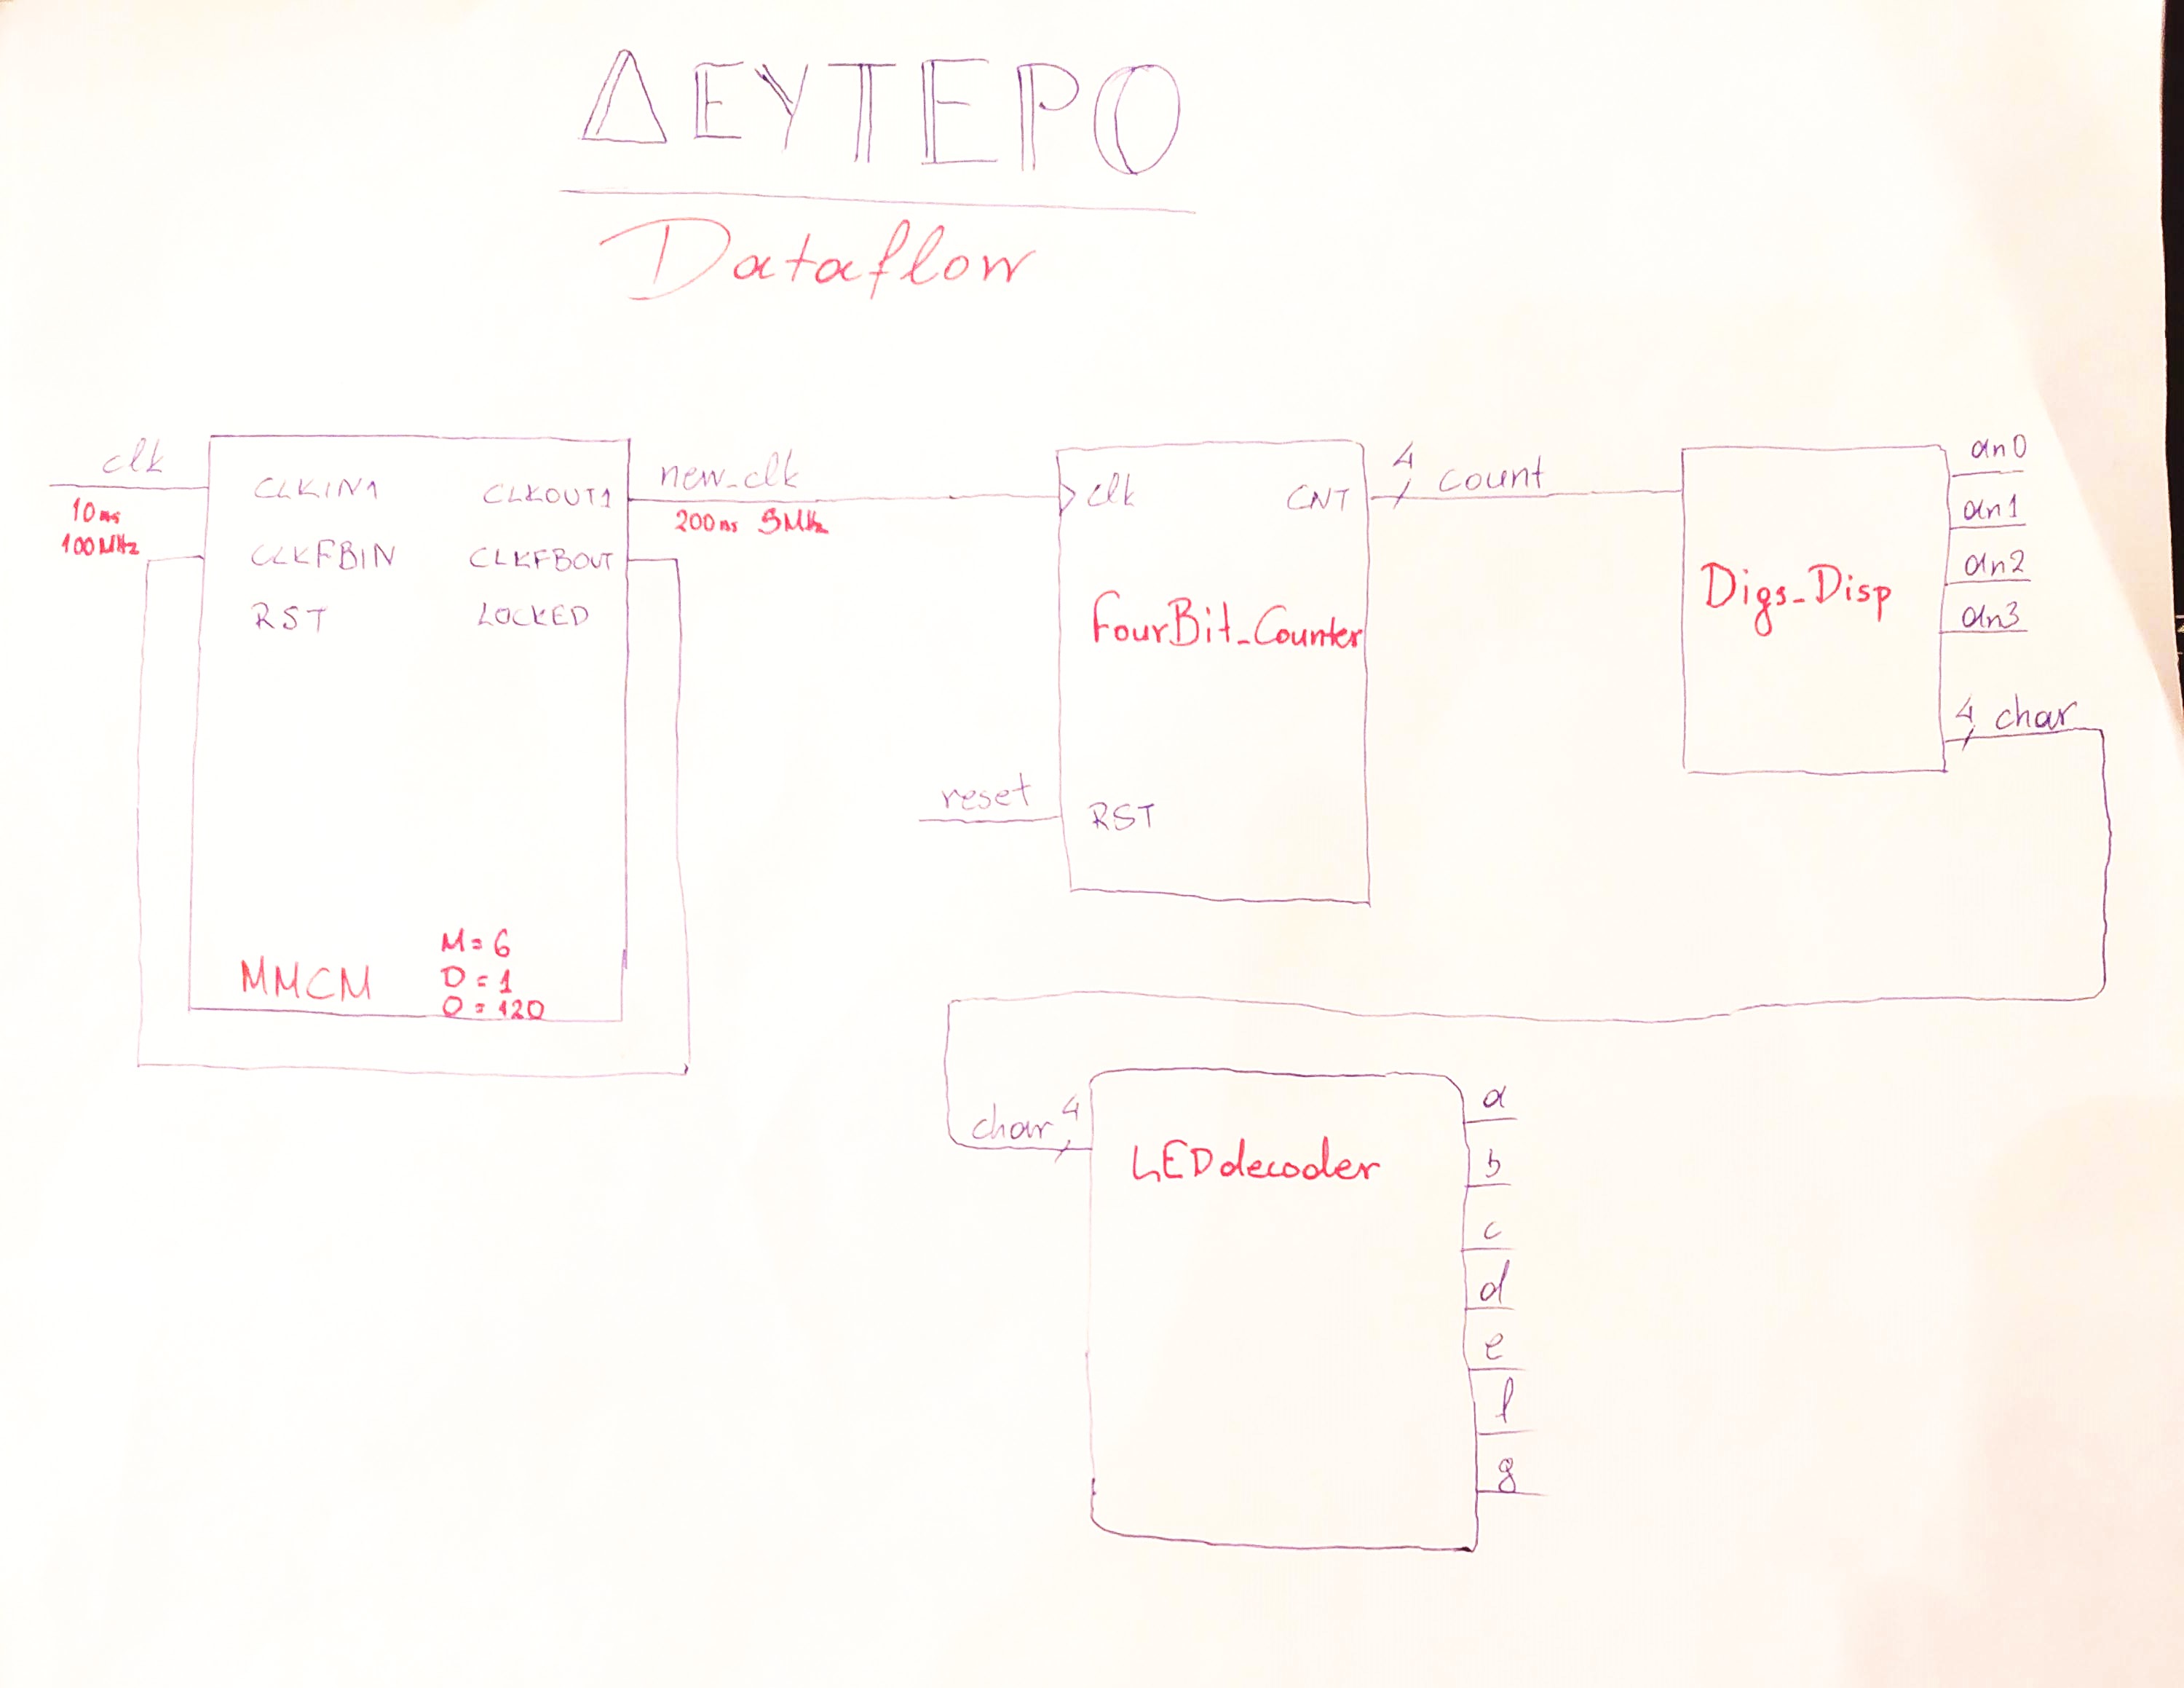 ΔΕΥΤΕΡΟ
Dataflow
clk
10ns
100MHz
CLKIN1
CLKOUT1
CLKFBIN
CLKFBOUT
RST
LOCKED
MMCM
M=6
D=1
O=120
new_clk
200ns 5MHz
clk
CNT
FourBit_Counter
reset
RST
4
count
Digs_Disp
an0
an1
an2
an3
4 char
char 4
LEDdecoder
a
b
c
d
e
f
g